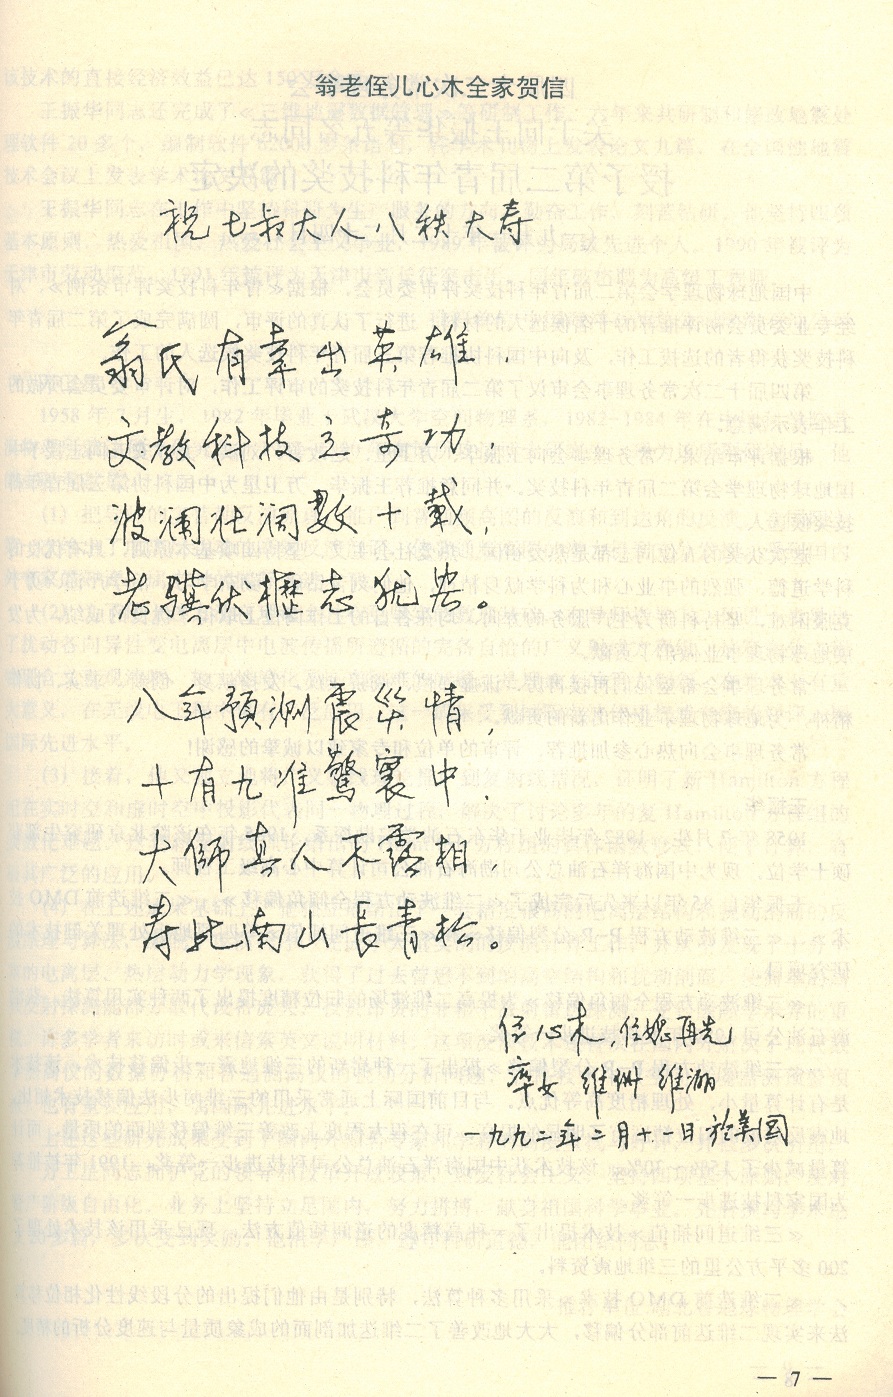 翁老侄儿心木全家贺信
祝七叔大人八秩大寿
翁氏有幸出英雄，
文教科技立奇功，
波澜壮阔数十载，
老骥伏櫪志犹宏。
八年预测震災情，
十有九准驚寰中，
大師真人不露相，
寿比南山長青松。
侄心木，侄媳再先
率女 维州 维湘
一九九二年二月十一日於美国
— 7 —